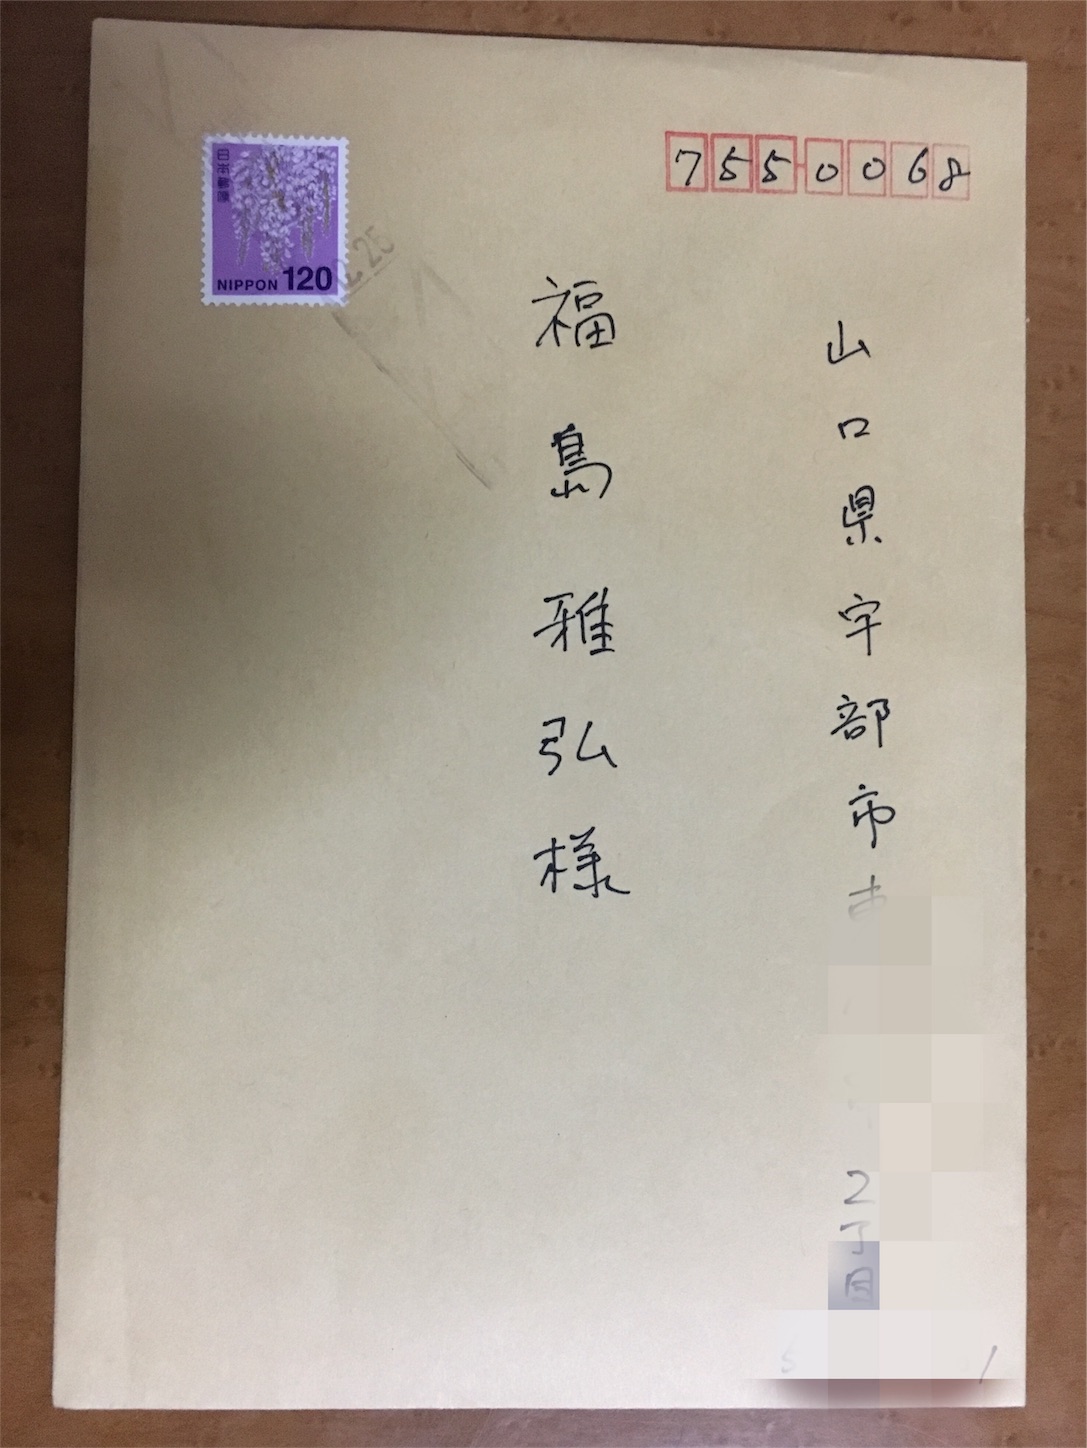 7550068
山口県宇部市
2丁目
福島雅弘様
日本郵便
NIPPON 120
25